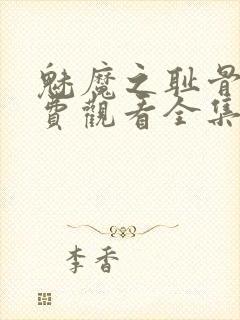 魅魔之耻骨
费觀看全集
李香